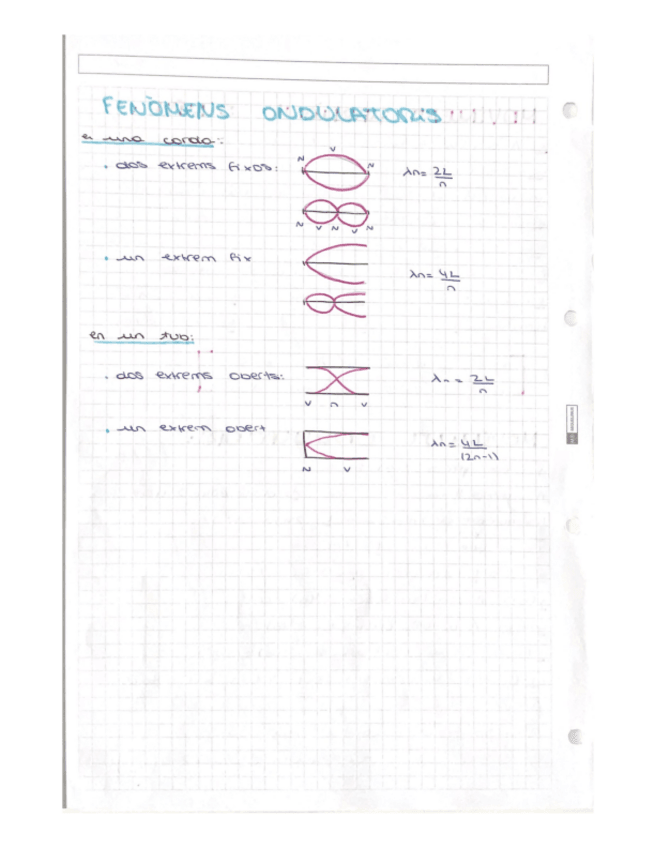 FENÒMENS ONDULATORIS
en una corda:
. dos extrems fixos:
N V N
λn= 2L/n
N V N V N
. un extrem fix
λn= 4L/n
en un tub:
. dos extrems oberts:
λn = 2L/n
V n V
. un extrem obert
λn= 4L/(2n-1)
N V